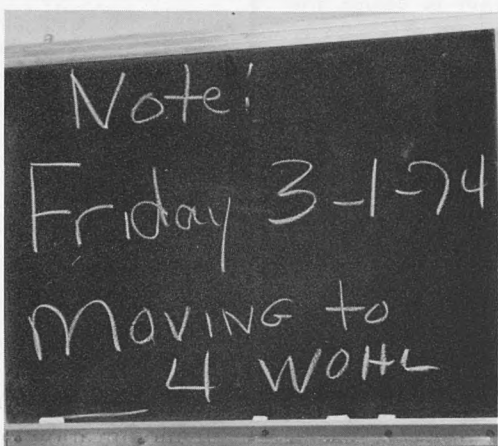 Note!
Friday 3-1-74
MOVING to
4 WOHL